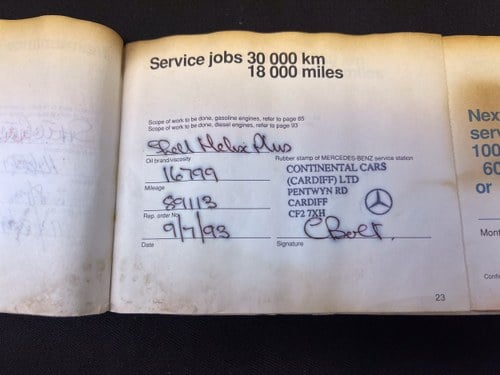 Service jobs 30 000 km
18 000 miles
Scope of work to be done, gasoline engines, refer to page 85
Scope of work to be done, diesel engines, refer to page 93
Shell Helix Plus
Oil brand/viscosity
Rubber stamp of MERCEDES-BENZ service station
16799
CONTINENTAL CARS
(CARDIFF) LTD
PENTWYN RD
CARDIFF
CF2 7XH
Mileage
89113
Rep. order No.
9/7/93
C Bolt.
Date
Signature
23
Nex
serv
100
60
or
Mont
Confi